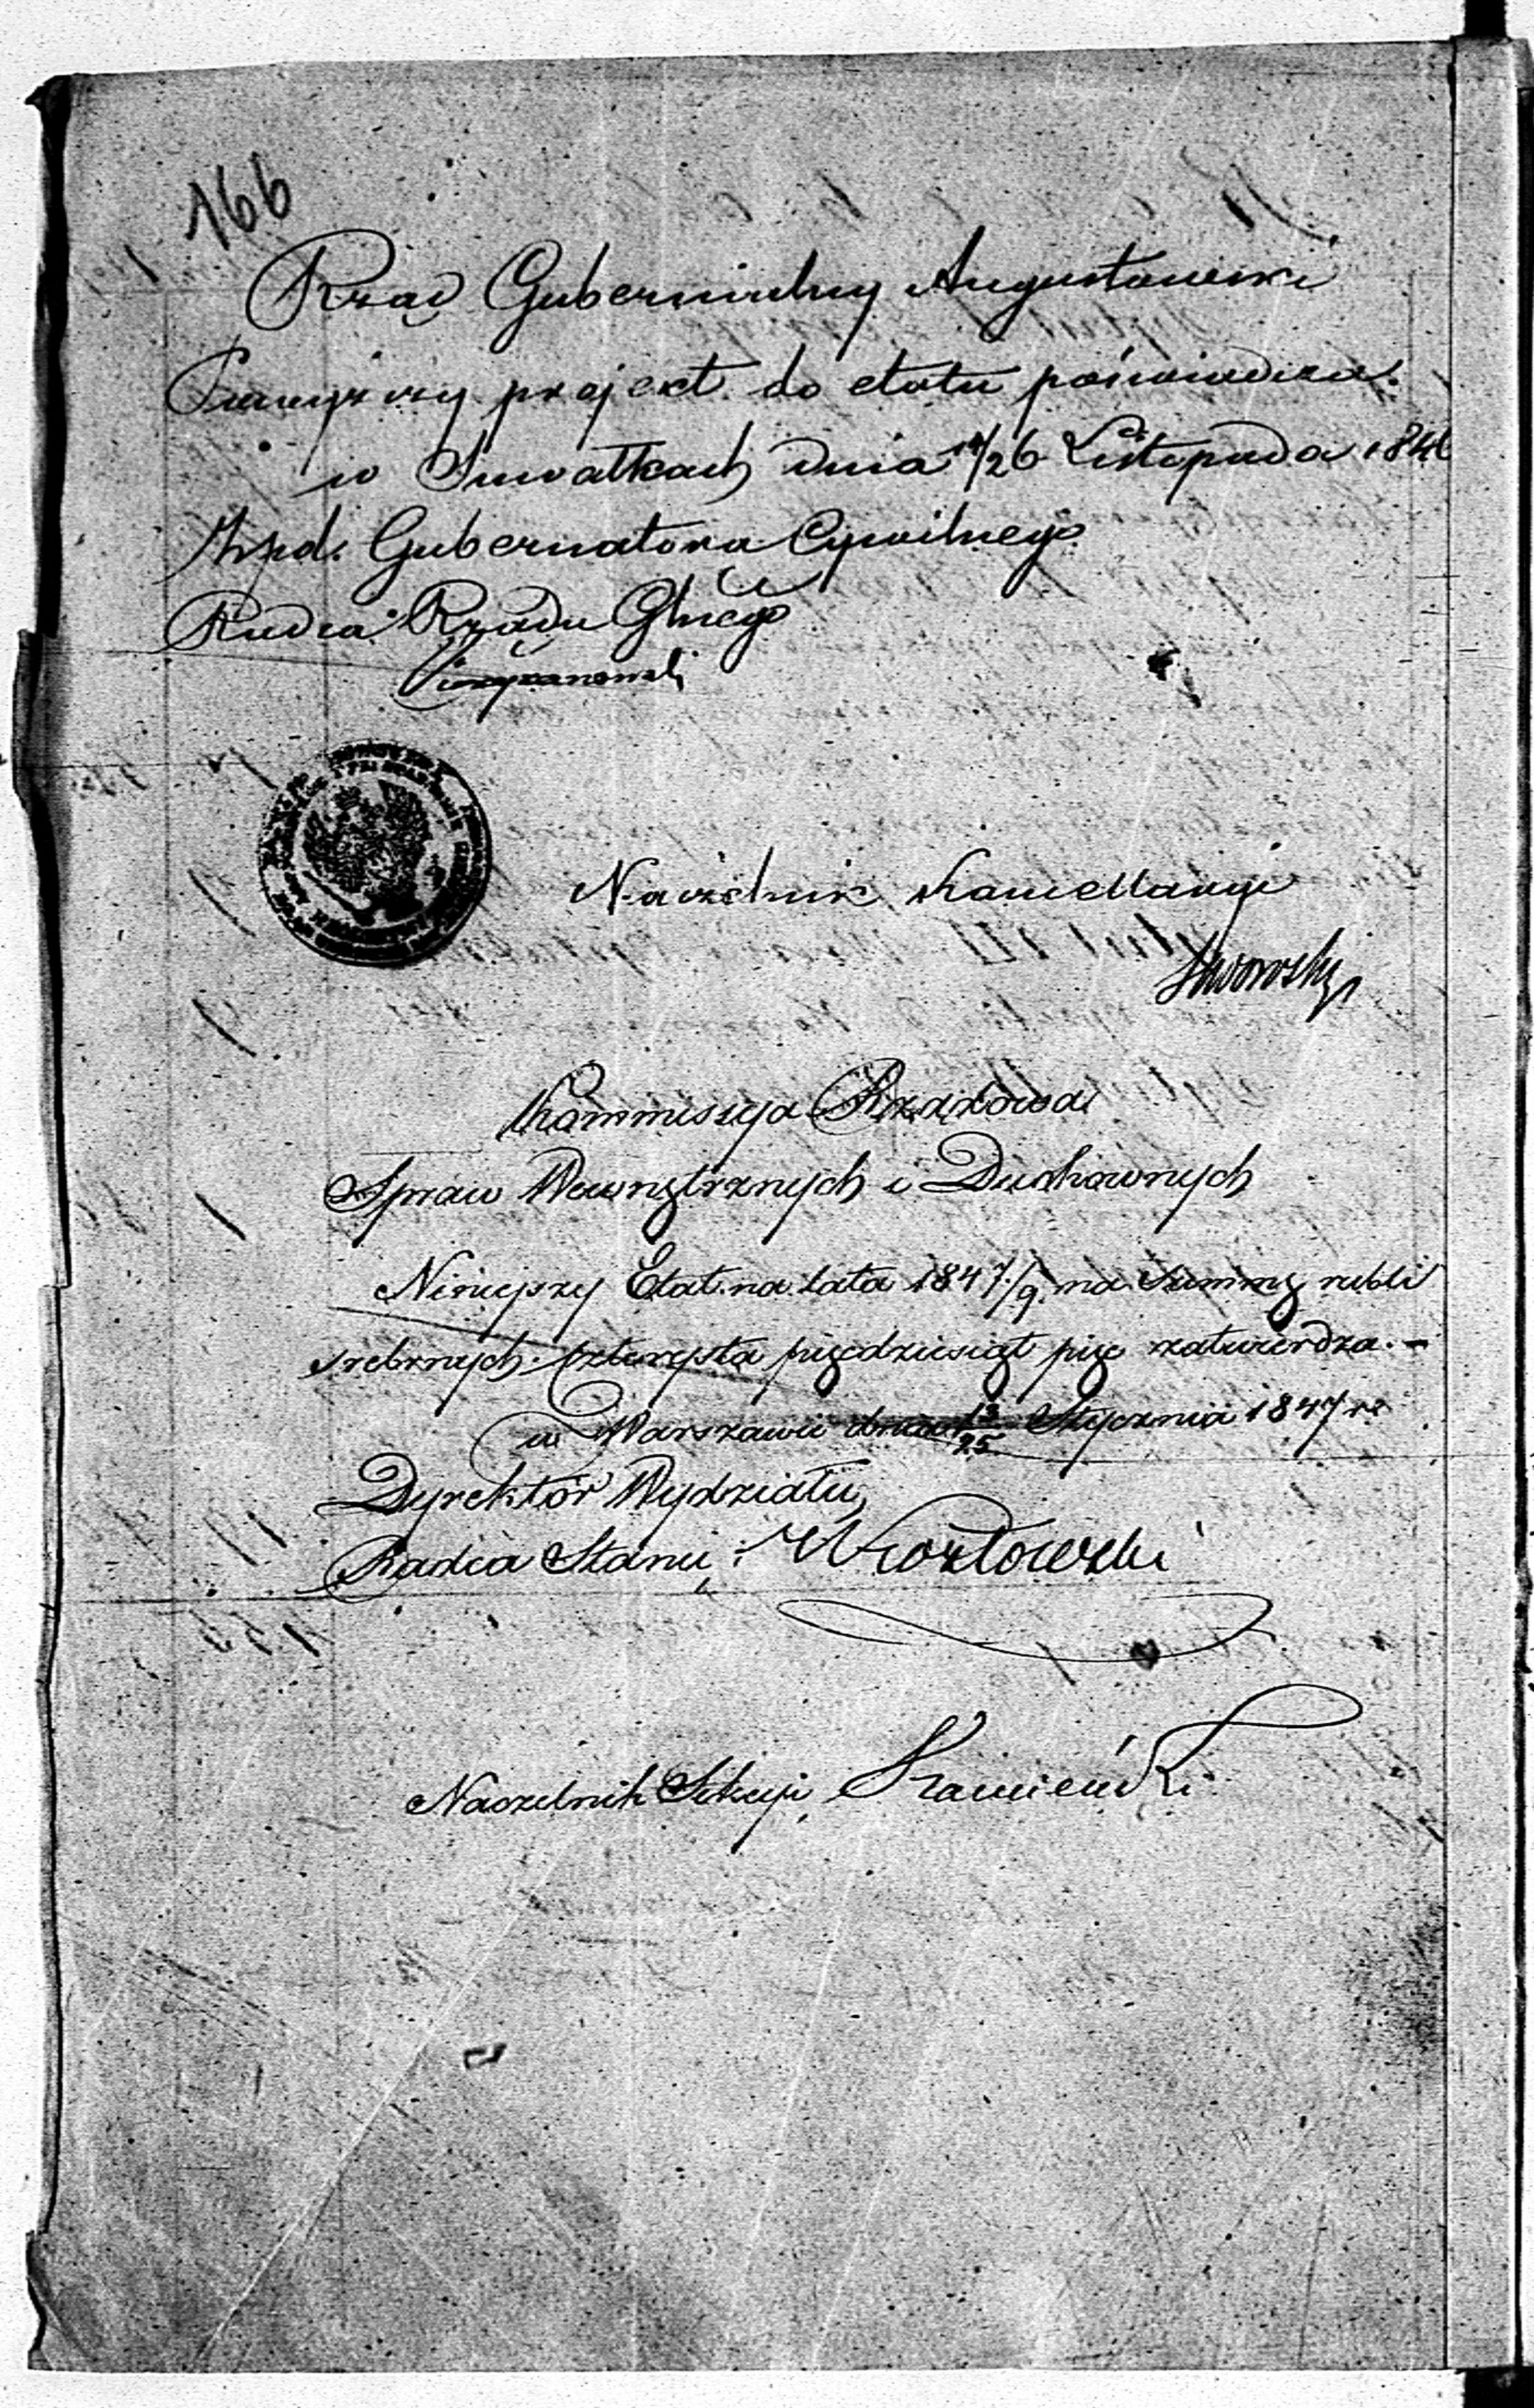 166
Rząd Gubernialny Augustowski
Powyższy project do etatu poświadcza.
w Suwałkach dnia 14/26 Listopada 1846
Wzpd. Gubernatora Cywilnego
Radca Rządu Glnego
Naczelnik Kancellaryi
Kommissya Rządowa
Spraw Wewnętrznych i Duchownych
Niniejszy Etat na lata 1847/9 na Summę rubli
srebrnych czterysta pięćdziesiąt pięć zatwierdza. –
w Warszawie dnia 13/25 Stycznia 1847 re
Dyrektor Wydziału,
Radca Stanu, Kozłowski
Naczelnik Sekcyi, Kamieński